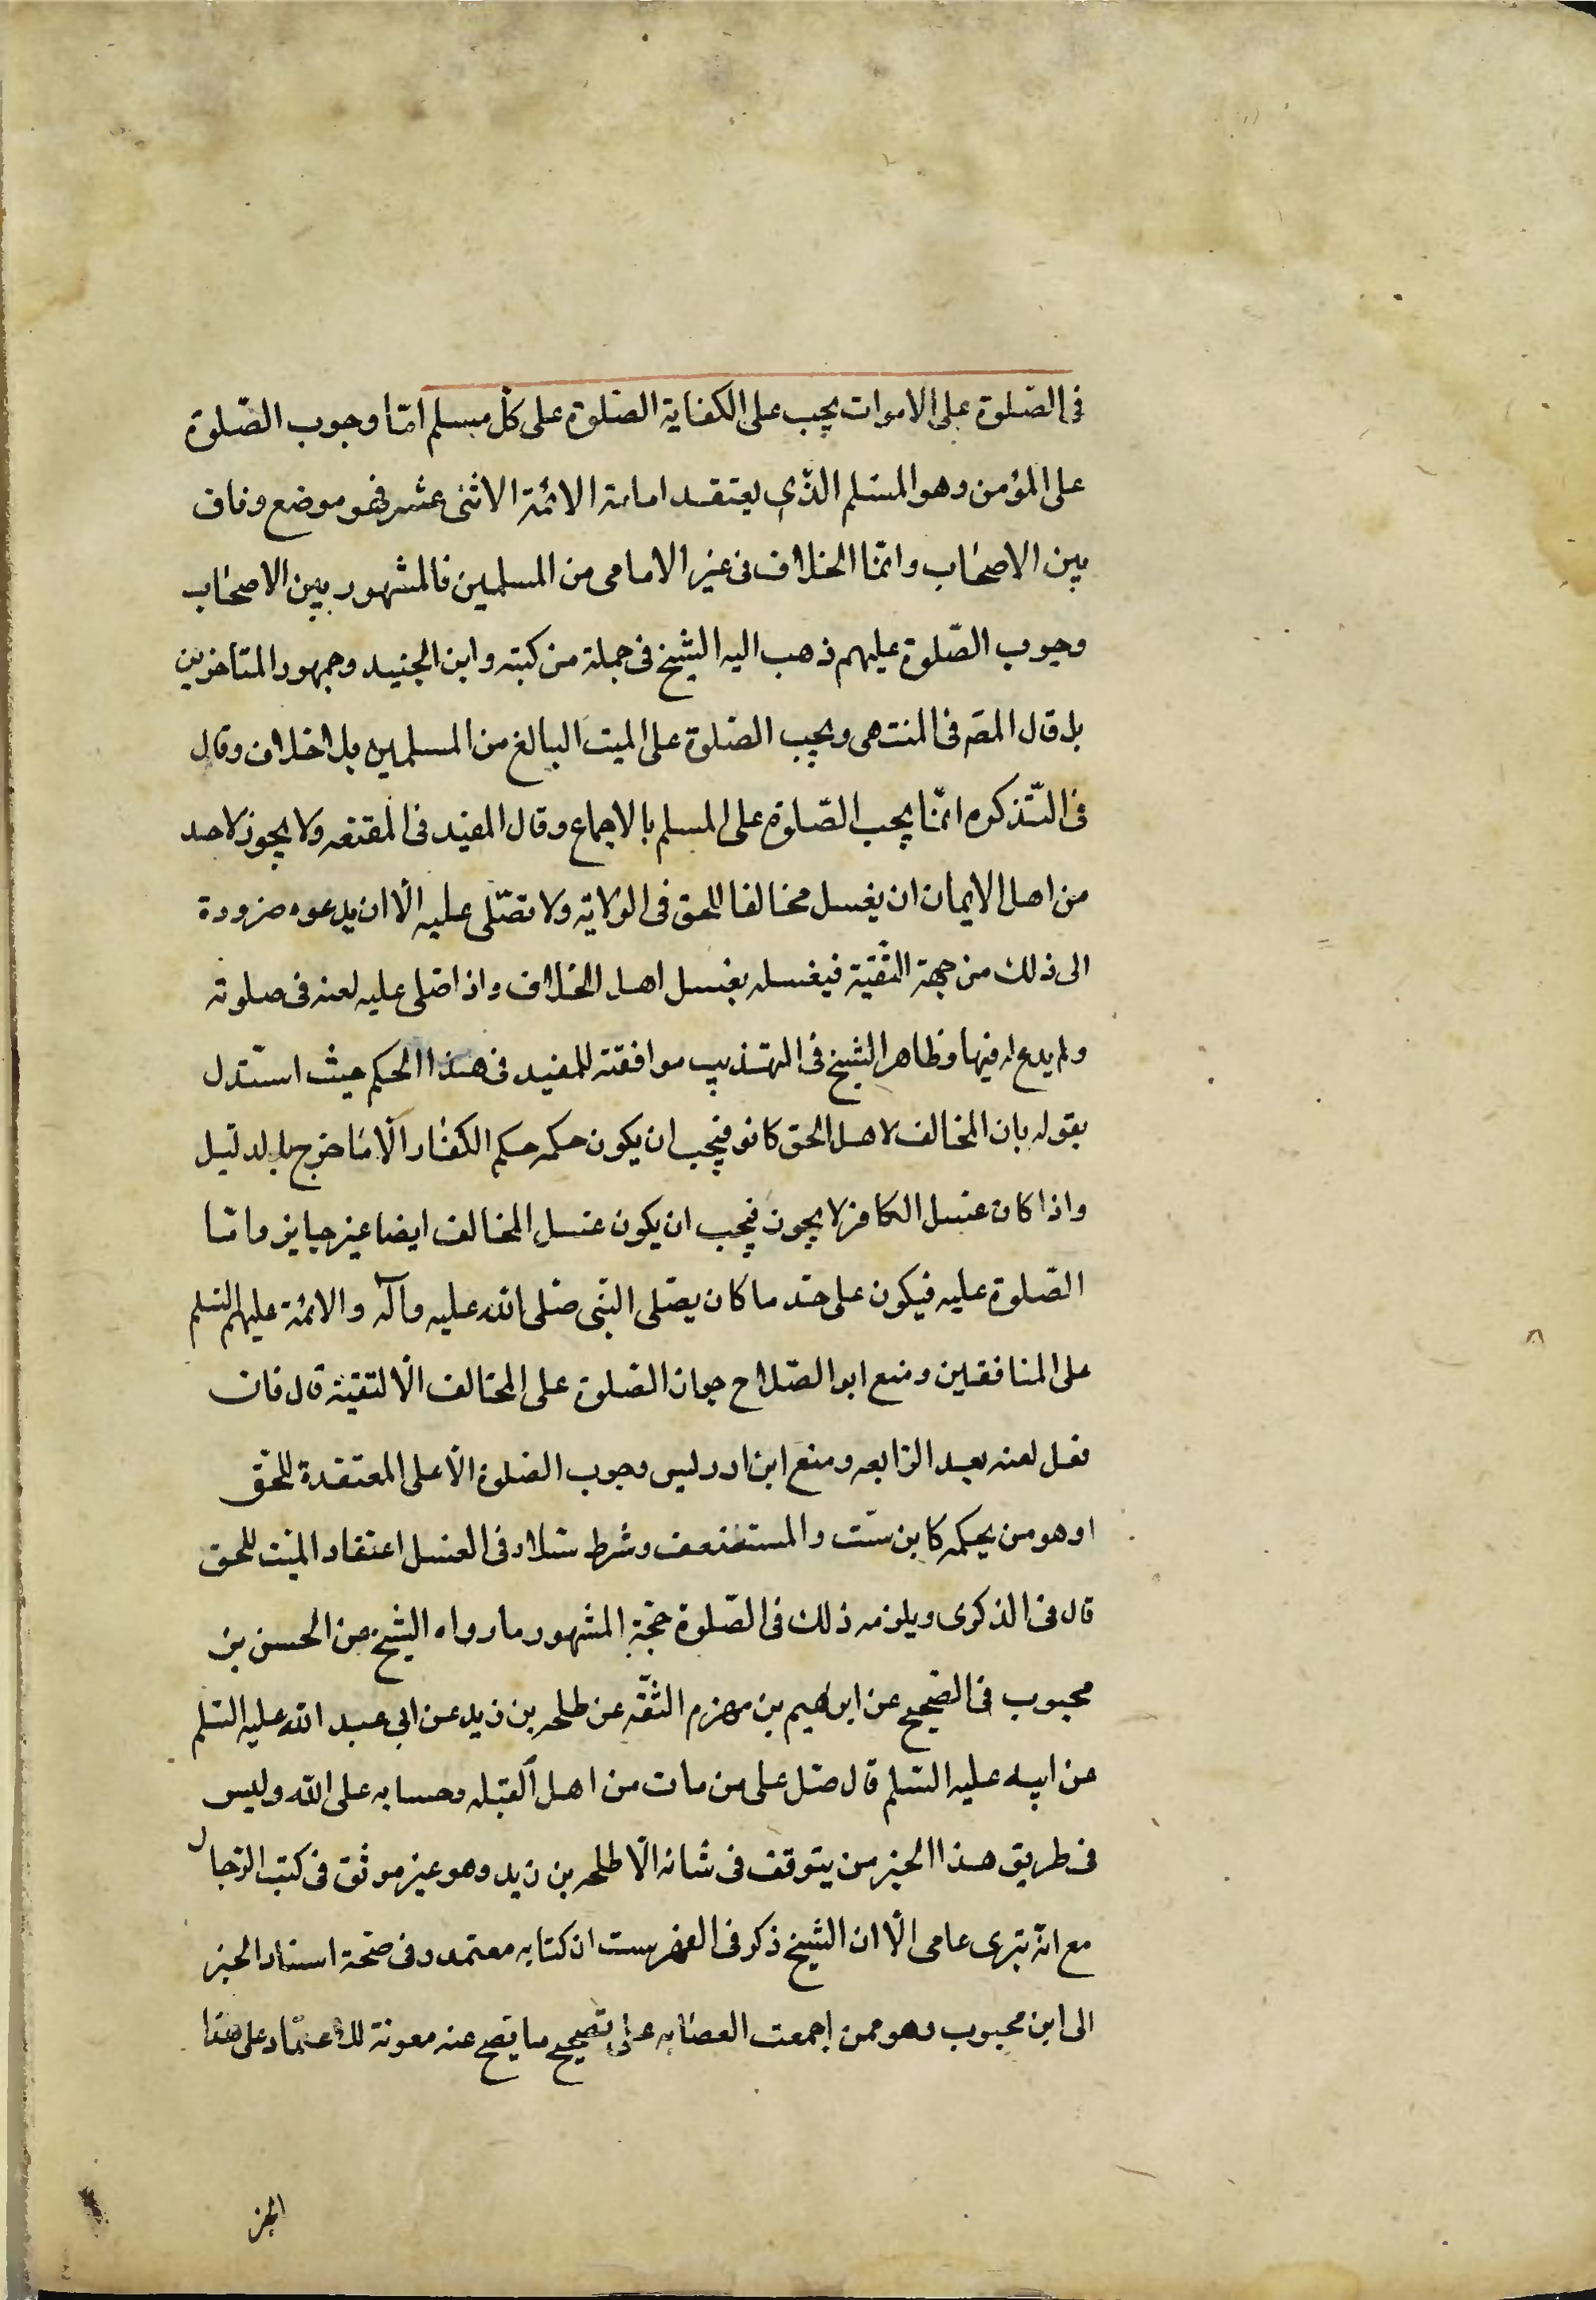 في الصّلوة على الاموات يجب على الكفاية الصّلوة على كلّ مسلم امّا وجوب الصّلوة
على المؤمن وهو المسلم الذّي يعتقد امامة الائمّة الاثنى عشر فهو موضع وفاق
بين الاصحاب وانّما الخلاف في غير الامامى من المسلمين فالمشهور بين الاصحاب
وجوب الصّلوة عليهم ذهب اليه الشيخ في جملة من كتبه وابن الجنيد وجمهور المتاخرين
بل قال المصّ في المنتهى ويجب الصّلوة على الميت البالغ من المسلمين بلا خلاف وقال
في التّذكره انّما يجب الصّلوة على المسلم بالاجماع وقال المفيد في المقنعه ولا يجوز لاحد
من اهل الايمان ان يغسل مخالفا للحق في الولاية ولا يصّلى عليه الّا ان يدعوه ضرورة
الى ذلك من جهة التّقيّة فيغسله بغسل اهل الخلاف واذا صلى عليه لعنه في صلوته
ولم يدع له فيها وظاهر الشيخ في التهذيب موافقته للمفيد في هذا الحكم حيث استدل
بقوله بان المخالف لاهل الحق كافر فيجب ان يكون حكمه حكم الكفّار الّا ما خرج بالدليل
واذا كان غسل الكافر لا يجوز فيجب ان يكون غسل المخالف ايضا غير جايز وامّا
الصّلوة عليه فيكون على حدّ ما كان يصلى النّبى صّلى الله عليه وآله والائمّة عليهم السّلم
على المنافقين ومنع ابو الصّلاح جواز الصّلوة على المخالف الّا لتقيّة قال فان
فعل لعنه بعد الرّابعه ومنع ابن ادريس وجوب الصّلوة الّا على المعتقدة للحّق
او هو من بحكمه كابن ستّ والمستضعف وشرط سّلار في الغسل اعتقاد الميّت للحق
قال في الذكرى ويلزمه ذلك في الصّلوة حجّة المشهور ما رواه الشيخ عن الحسن بن
محبوب في الصّحيح عن ابراهيم بن مهزم الثّقه عن طلحه بن زيد عن ابي عبد الله عليه السّلم
عن ابيه عليه السّلم قال صّل على من مات من اهل القبله وحسابه على الله وليس
في طريق هذا الخبر من يتوقف في شانه الّا طلحه بن زيد وهو غير موثق في كتب الرّجال
مع انّه بترى عامى الّا ان الشيخ ذكر في الفهرست ان كتابه معتمد وفي صّحة اسناد الخبر
الى ابن محبوب وهو ممن اجمعت العصّابه على تصحيح ما يصح عنه معونة للاعتماد على هذا
الخبر